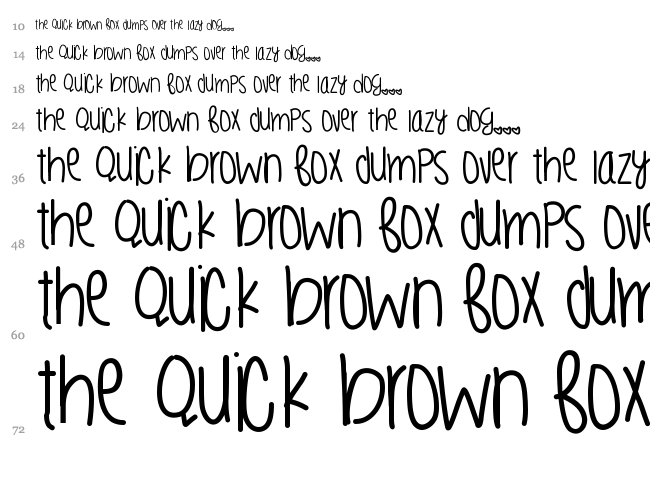 10 the Quick brown fox dumps over the lazy dog...
14 the Quick brown fox dumps over the lazy dog...
18 the Quick brown fox dumps over the lazy dog...
24 the Quick brown fox dumps over the lazy dog...
36 the Quick brown fox dumps over the lazy
48 the Quick brown fox dumps ove
60 the Quick brown fox dum
72 the Quick brown fox